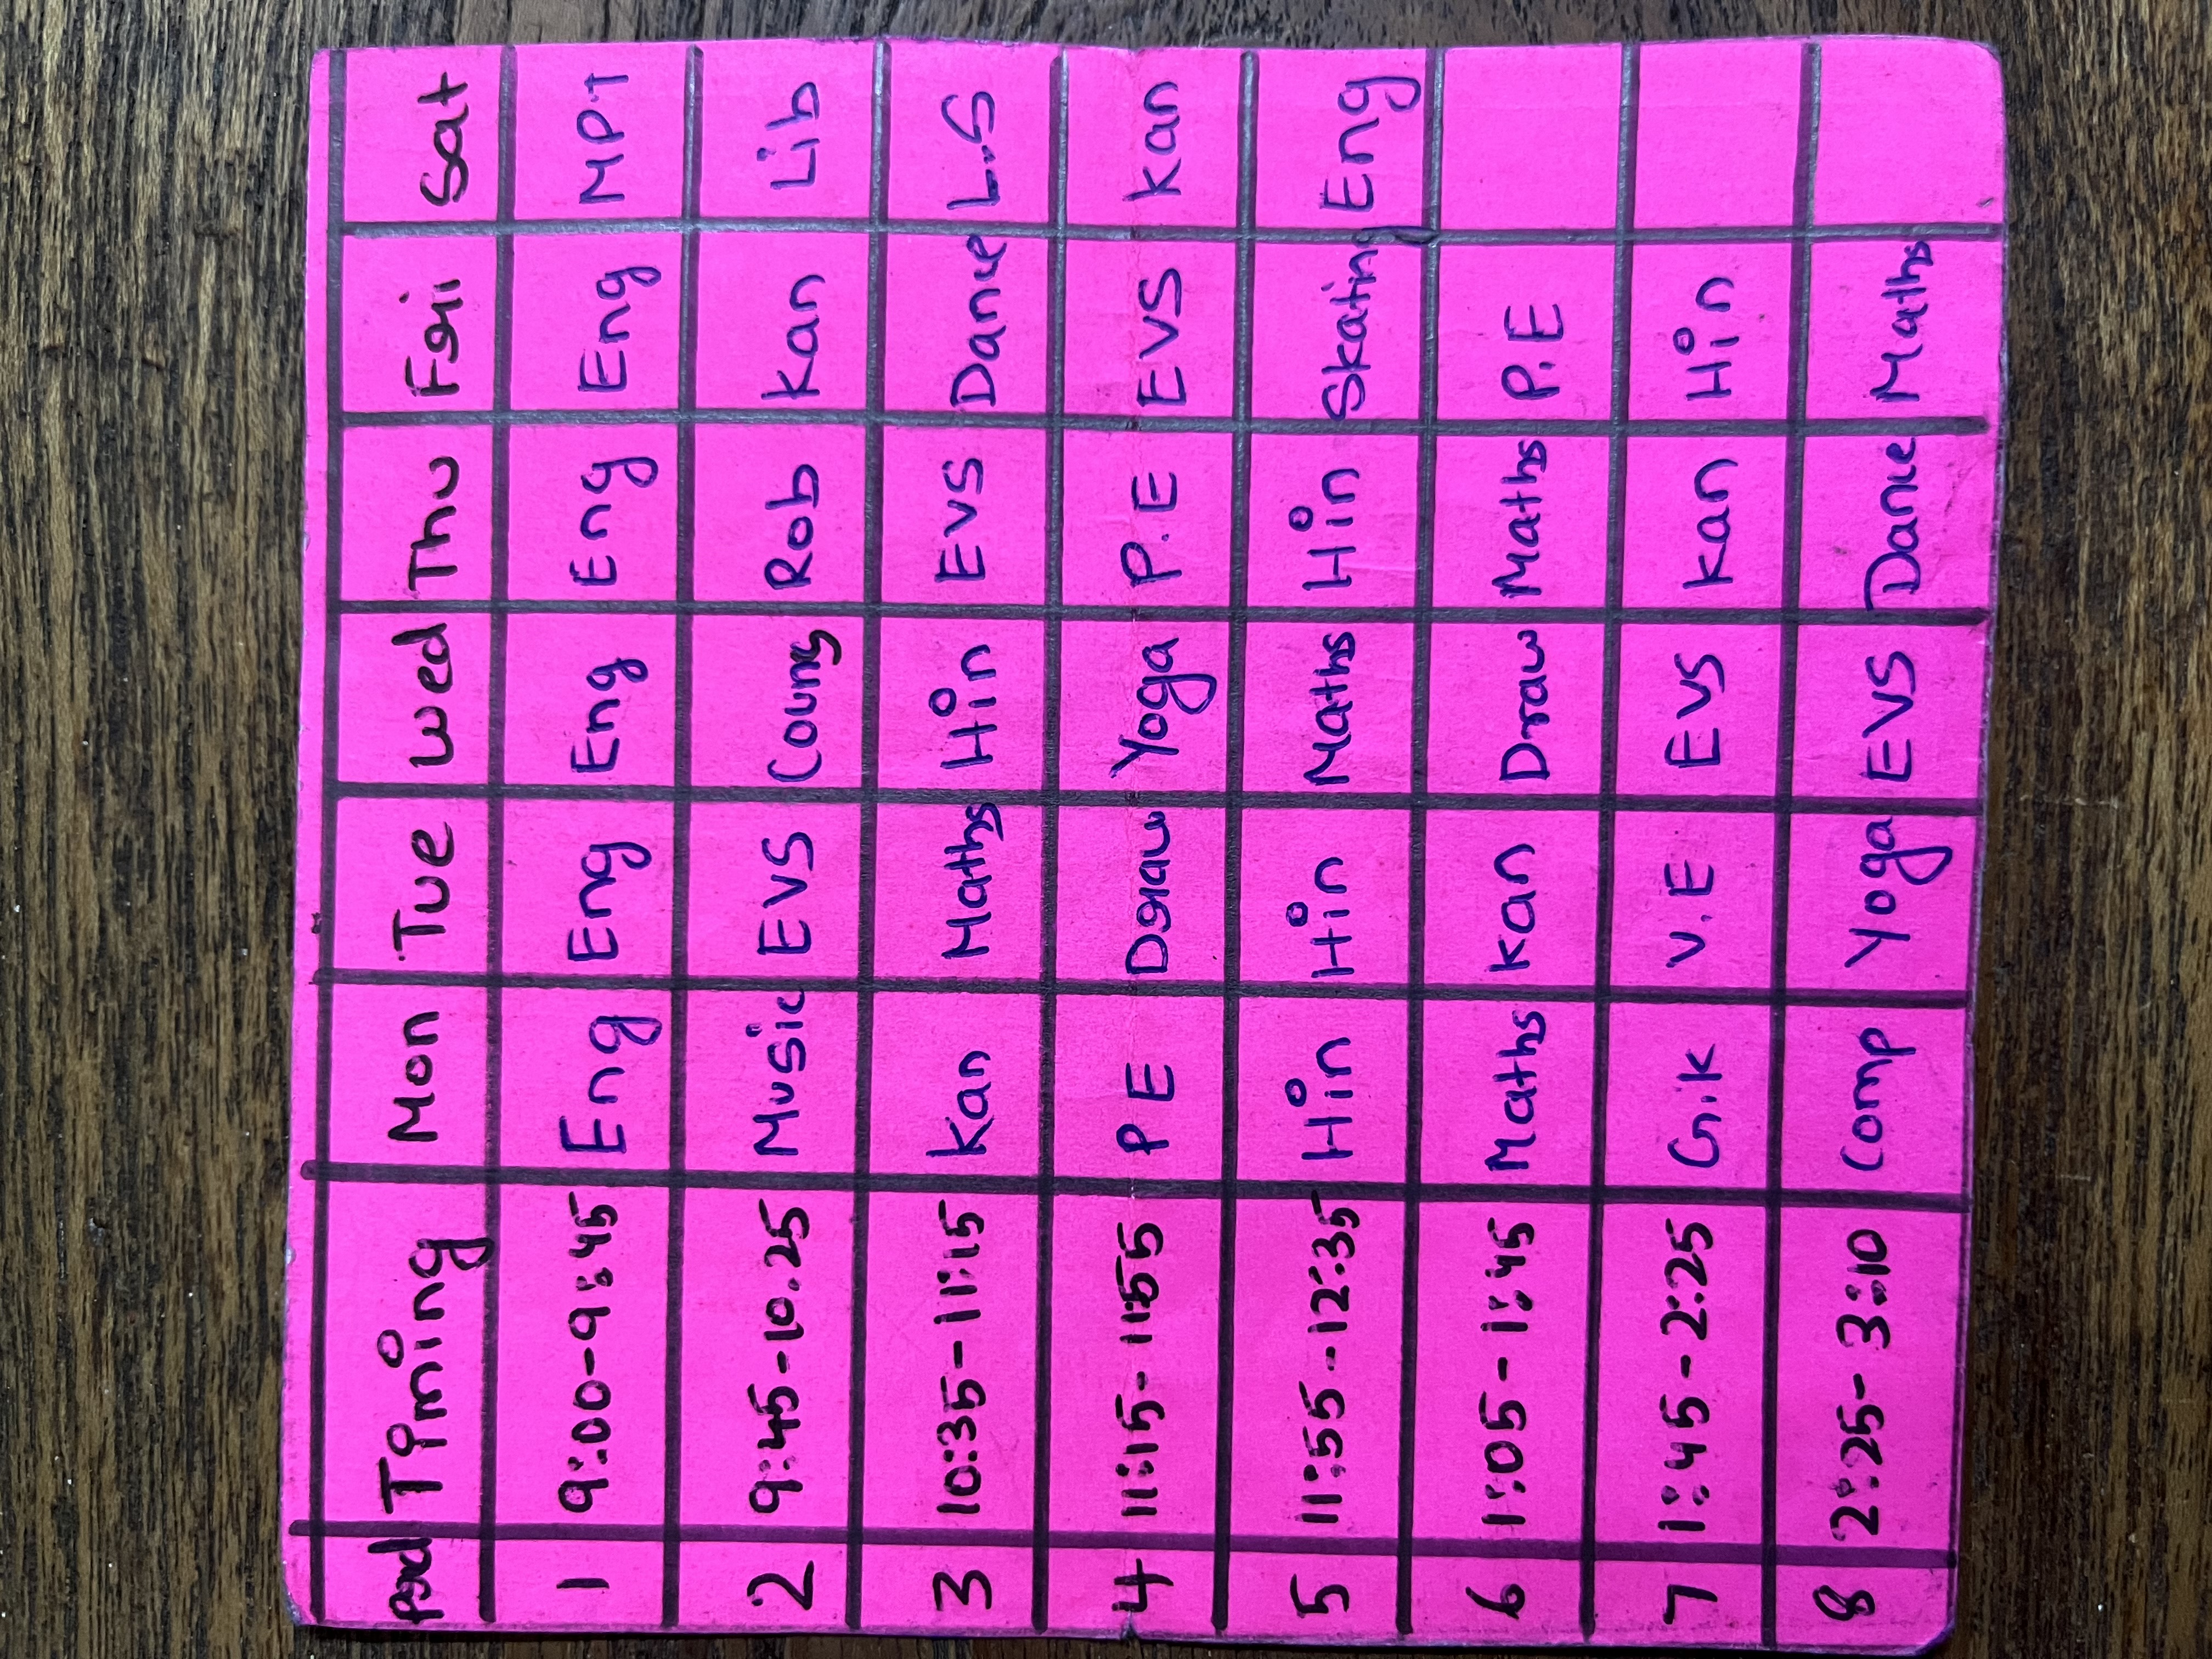 Prd Timing Mon Tue Wed Thu Frii Sat
1 9:00-9:45 Eng Eng Eng Eng Eng MPT
2 9:45-10.25 Music EVS Couns Rob Kan Lib
3 10:35-11:15 Kan Maths Hin EVS Dance L.S
4 11:15-11:55 PE Draw Yoga P.E EVS Kan
5 11:55-12:35 Hin Hin Maths Hin Skating Eng
6 1:05-1:45 Maths Kan Draw Maths P.E
7 1:45-2:25 G.K V.E EVS Kan Hin
8 2:25-3:10 Comp Yoga EVS Dance Maths